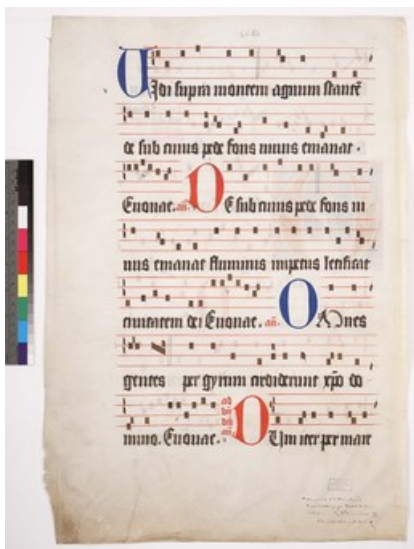 Vidi supra montem agnum stantē
de sub cuius pede fons uiuus emanat.
Euouae. añ. De sub cuius pede fons ui
uus emanat fluminis impetus letificat
ciuitatem dei Euouae. añ. Omnes
gentes per gyrum crediderunt xp̄o do
mino. Euouae. Dum iter per mare